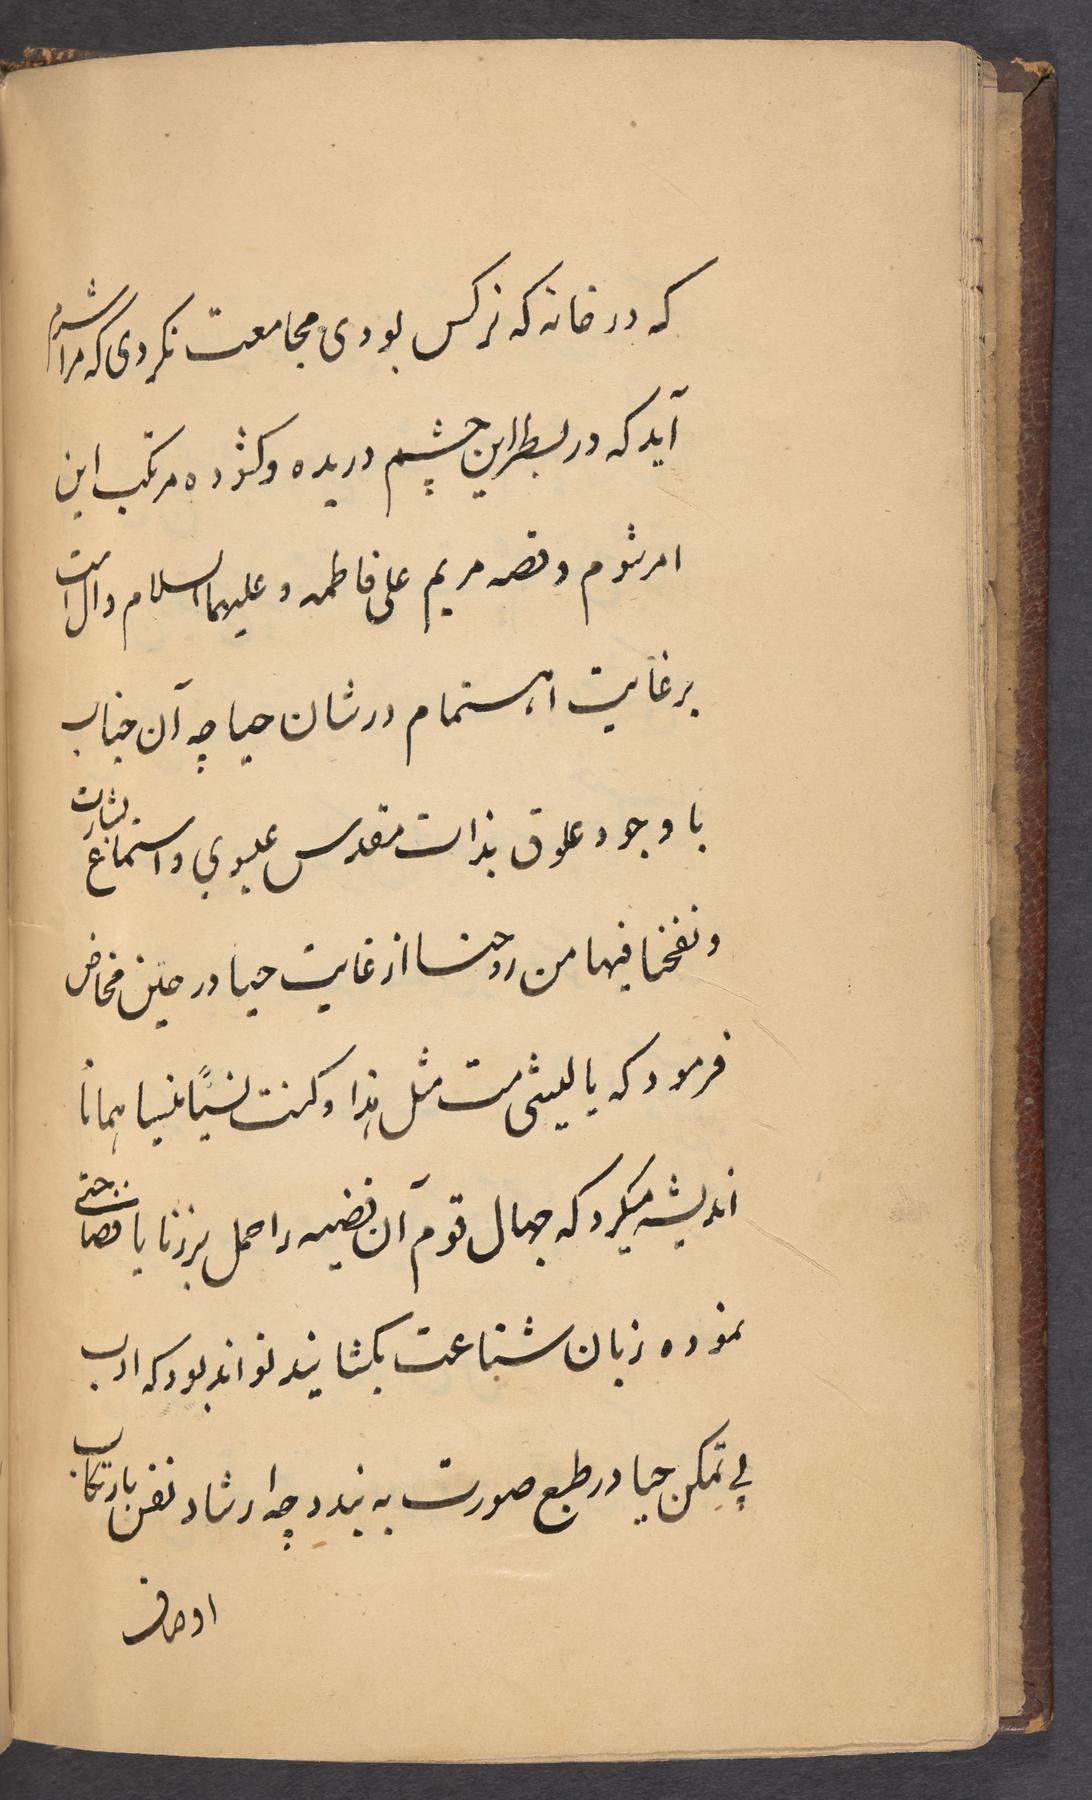 که در خانه که نرکس بودی مجامعت نکردی که مرا شرم
آید که در بسطر این چشم دریده و کشوده مرتکب این
امر شوم و قصه مریم علی فاطمه و علیهما السلام دال است
بر غایت اهتمام در شان حیا چه آن جناب
با وجود علوق بذات مقدس عیسوی و استماع بشارت
و نفخنا فیها من روحنا از غایت حیا در حین مخاض
فرمود که یا لیتنی مت مثل هذا و کنت نسیًا منسیا همانا
اندیشه میکرد که جهال قوم آن قضیه را حمل بر زنا یا فضاحتی
نموده زبان شناعت بکشایند نواند بود که ادب
بی تمکن حیا در طبع صورت به بندد چه ارشاد نفس بارتکاب
اوصاف